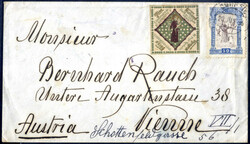 Monsieur
Bernhard Rauch
Untere Augartenstrasse 38
Vienne VII
Austria Schottenfeldgasse
56